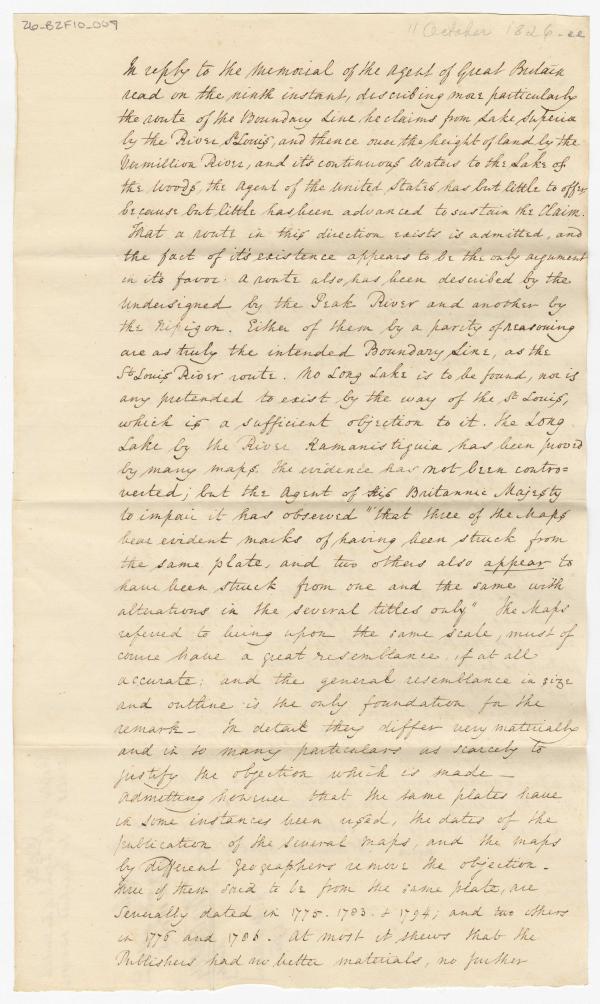 26-B2F10-009
11 October 1826
In reply to the Memorial of the Agent of Great Britain
read on the ninth instant, describing more particularly
the route of the Boundary Line he claims from Lake Superior
by the River St Louis, and thence over the height of land by the
Vermillion River, and its continuous waters to the Lake of
the Woods, the Agent of the United States has but little to offer
because but little has been advanced to sustain the Claim.
That a route in this direction exists is admitted, and
the fact of it's existence appears to be the only argument
in it's favor. A route also has been described by the
Undersigned by the Peak River and another by
the Nipigon. Either of them by a parity of reasoning
are as truly the intended Boundary Line, as the
St Louis River route. No Long Lake is to be found, nor is
any pretended to exist by the way of the St Louis,
which is a sufficient objection to it. The Long
Lake by the River Kamanistiguia has been proved
by many maps. The evidence has not been contro=
verted; but the Agent of his Britannic Majesty
to impair it has observed "that three of the Maps
bear evident marks of having been struck from
the same plate, and two others also appear to
have been struck from one and the same with
alterations in the several titles only" The Maps
refered to being upon the same scale, must of
course have a great resemblance, if at all
accurate; and the general resemblance in size
and outline is the only foundation for the
remark - In detail they differ very materially
and in so many particulars as scarcely to
justify the objection which is made -
Admitting however that the same plates have
in some instances been used, the dates of the
publication of the several maps, and the maps
by different Geographers remove the objection -
three of them said to be from the same plate, are
severally dated in 1775. 1783. & 1794; and two others
in 1776 and 1786. At most it shews that the
Publishers had no better materials, no further